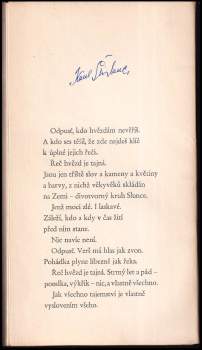 Odpusť, kdo hvězdám nevěříš.
A kdo ses těžil, že zde najdeš klíč
k úplné jejich řeči.
Řeč hvězd je tajná.
Jsou jen tříště slov a kameny a květiny
a barvy, z nichž věkyvěků skládán
na Zemi – divotvorný kruh Slunce.
Jenž mocí zlé. I laskavé.
Záleží, kdo a kdy v čas žití
před ním stane.
Nic navíc není.
Odpusť. Verš má hlas jak zvon.
Pohádka plyne líbezně jak řeka.
Řeč hvězd je tajná. Strmý let a pád –
pomlka, výkřik – nic, a vlastně všechno.
Jak všechno tajemství je vlastně
vyslovením všeho.